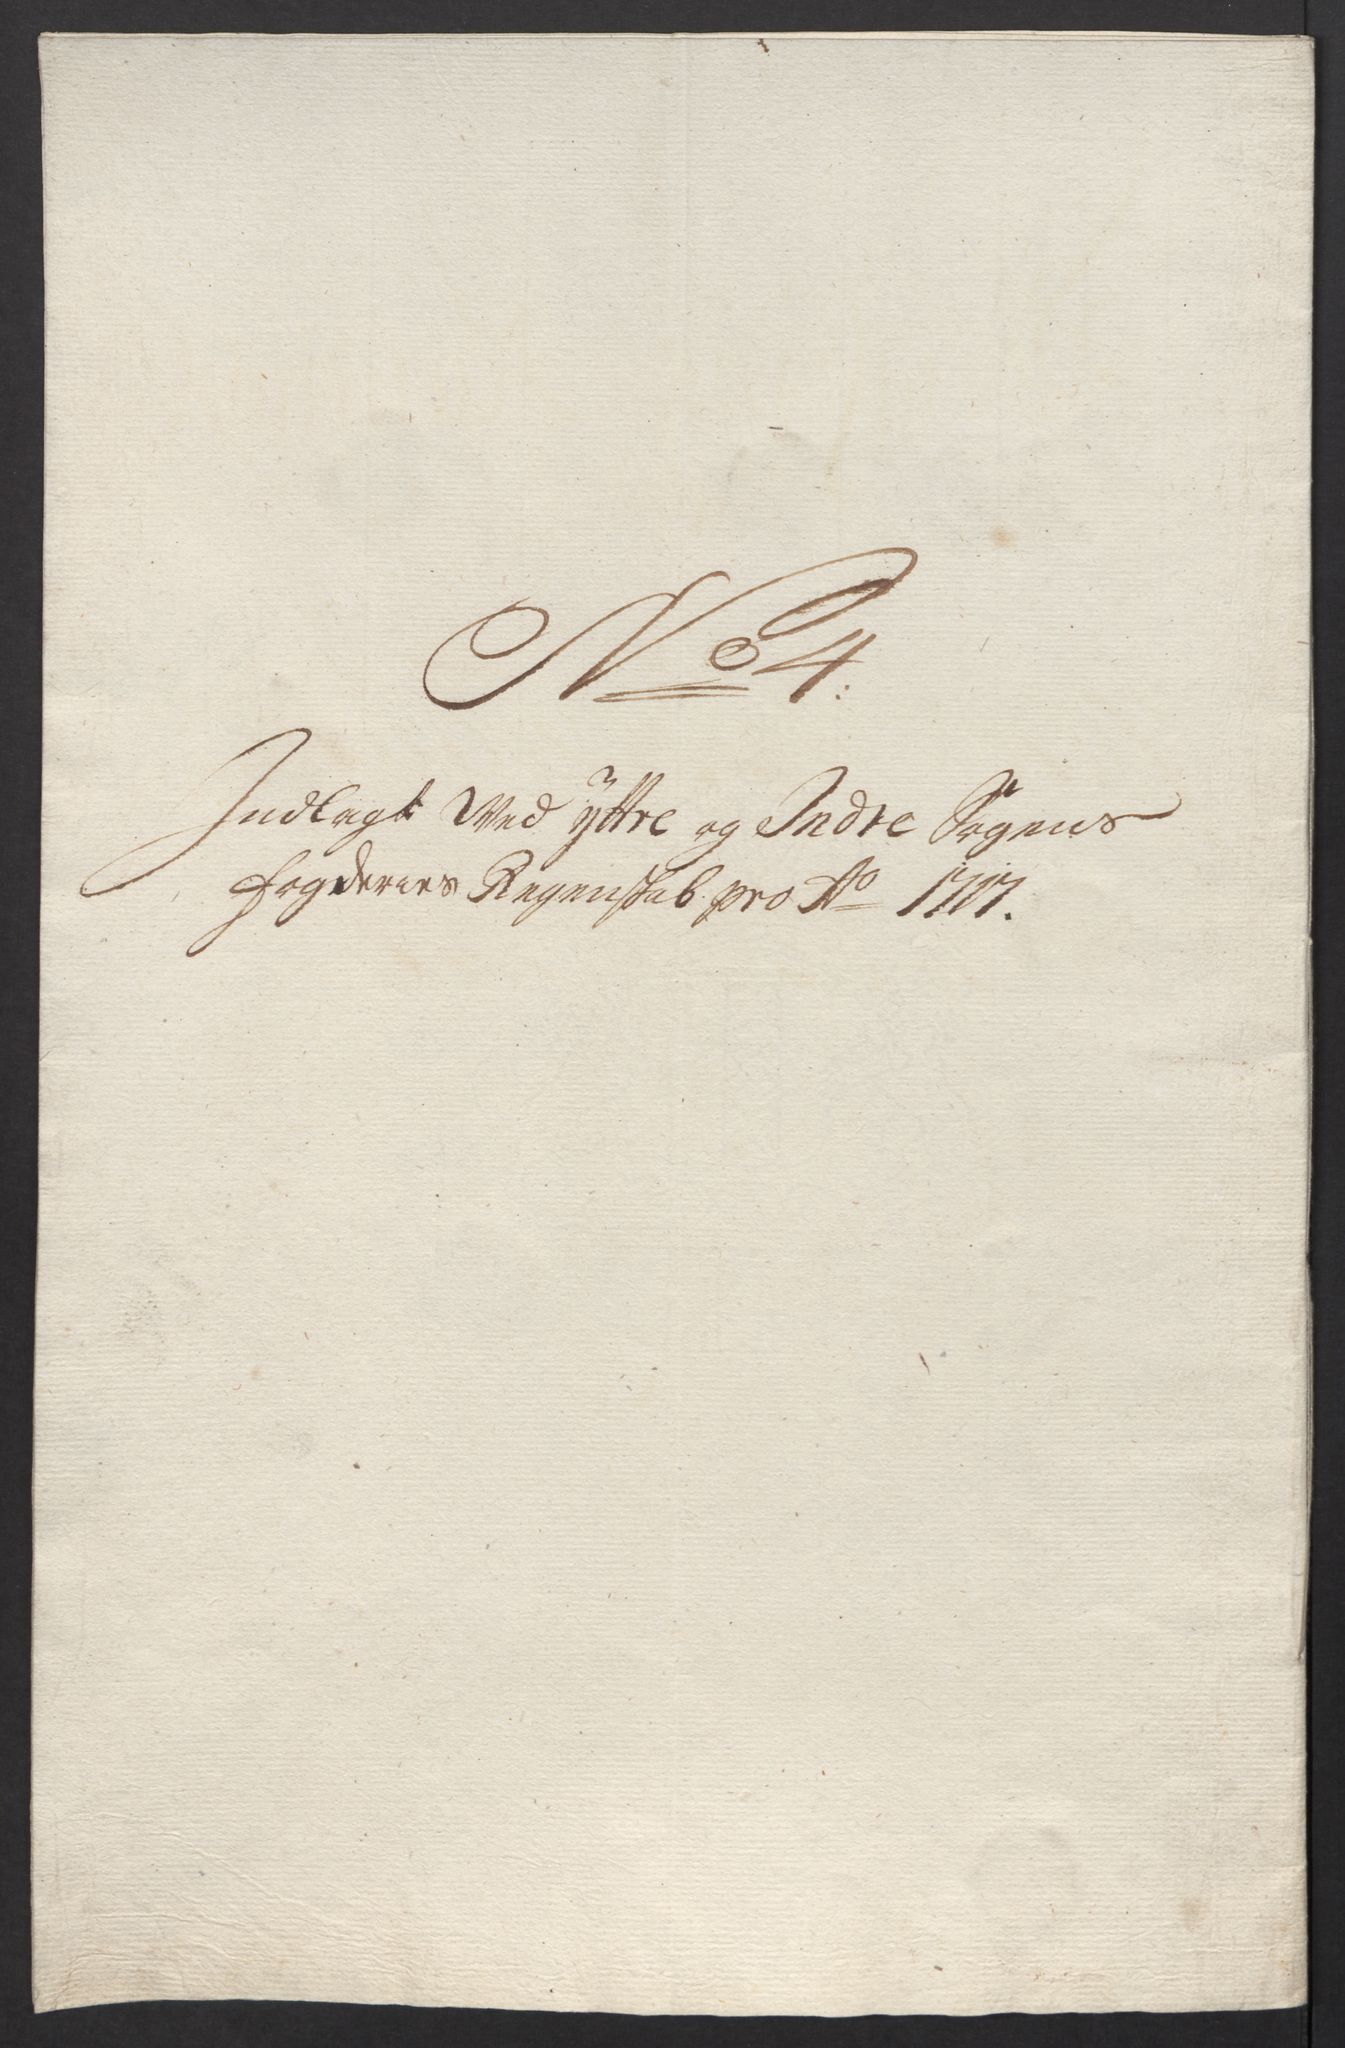 No 4:
Indlagt Ved ÿttre og Indre Sogens
fogderies Regenskab pro Ao 1717.